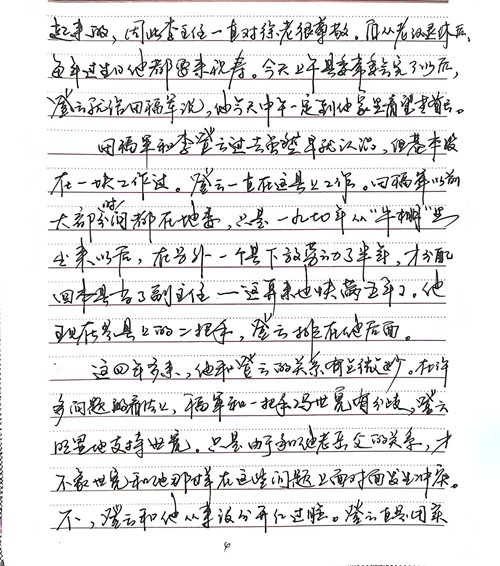 起来的,因此李主任一直对徐老很尊敬。自从老汉退休后,
每年过生日他都要来祝寿。今天上午县委常委会完了以后,
登云硬给田福军说,他今天中午一定到他家里看望老首长。
田福军和李登云过去虽然早就认识,但基本没
在一块工作过。登云一直在这县上工作。田福军以前
大部分时间都在地委,只是一九七〇年从“牛棚”里
出来以后,在另外一个县下放劳动了半年,才分配
回本县当了副主任——这算来也快满五年了。他
现在是县上的二把手,登云排在他后面。
这四年多来,他和登云的关系有点微妙。在许
多问题的看法上,福军和一把手冯世宽有分歧,登云
明显地支持世宽。只是由于和他老丈人的关系,才
不象世宽和他那样在这些问题上面对面发生冲突。
不,登云和他从来没分开红过脸。登云直是因家
6